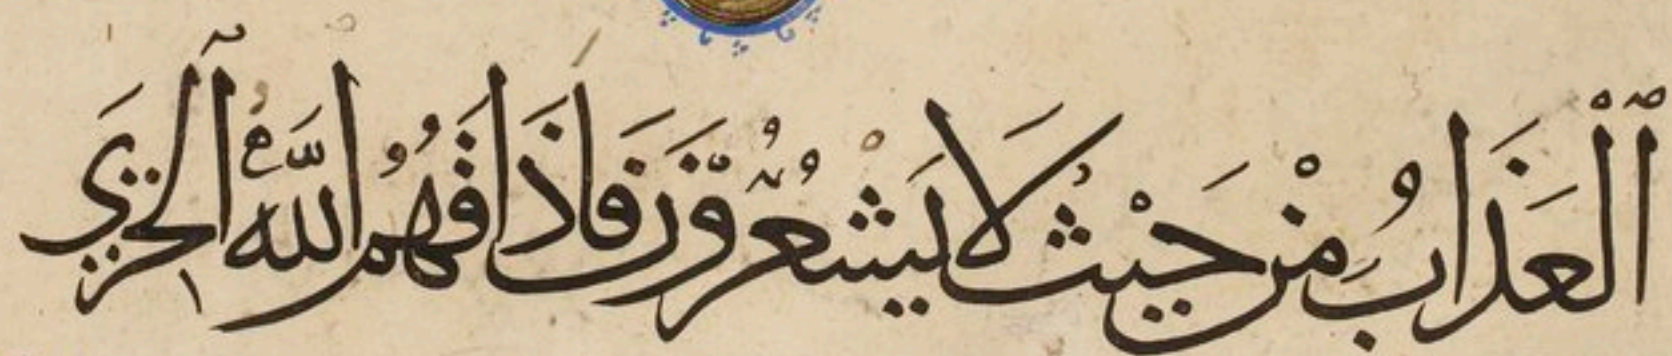 ٱلْعَذَابُ مِنْ حَيْثُ لَا يَشْعُرُونَ فَأَذَاقَهُمُ ٱللَّهُ ٱلْخِزْيَ